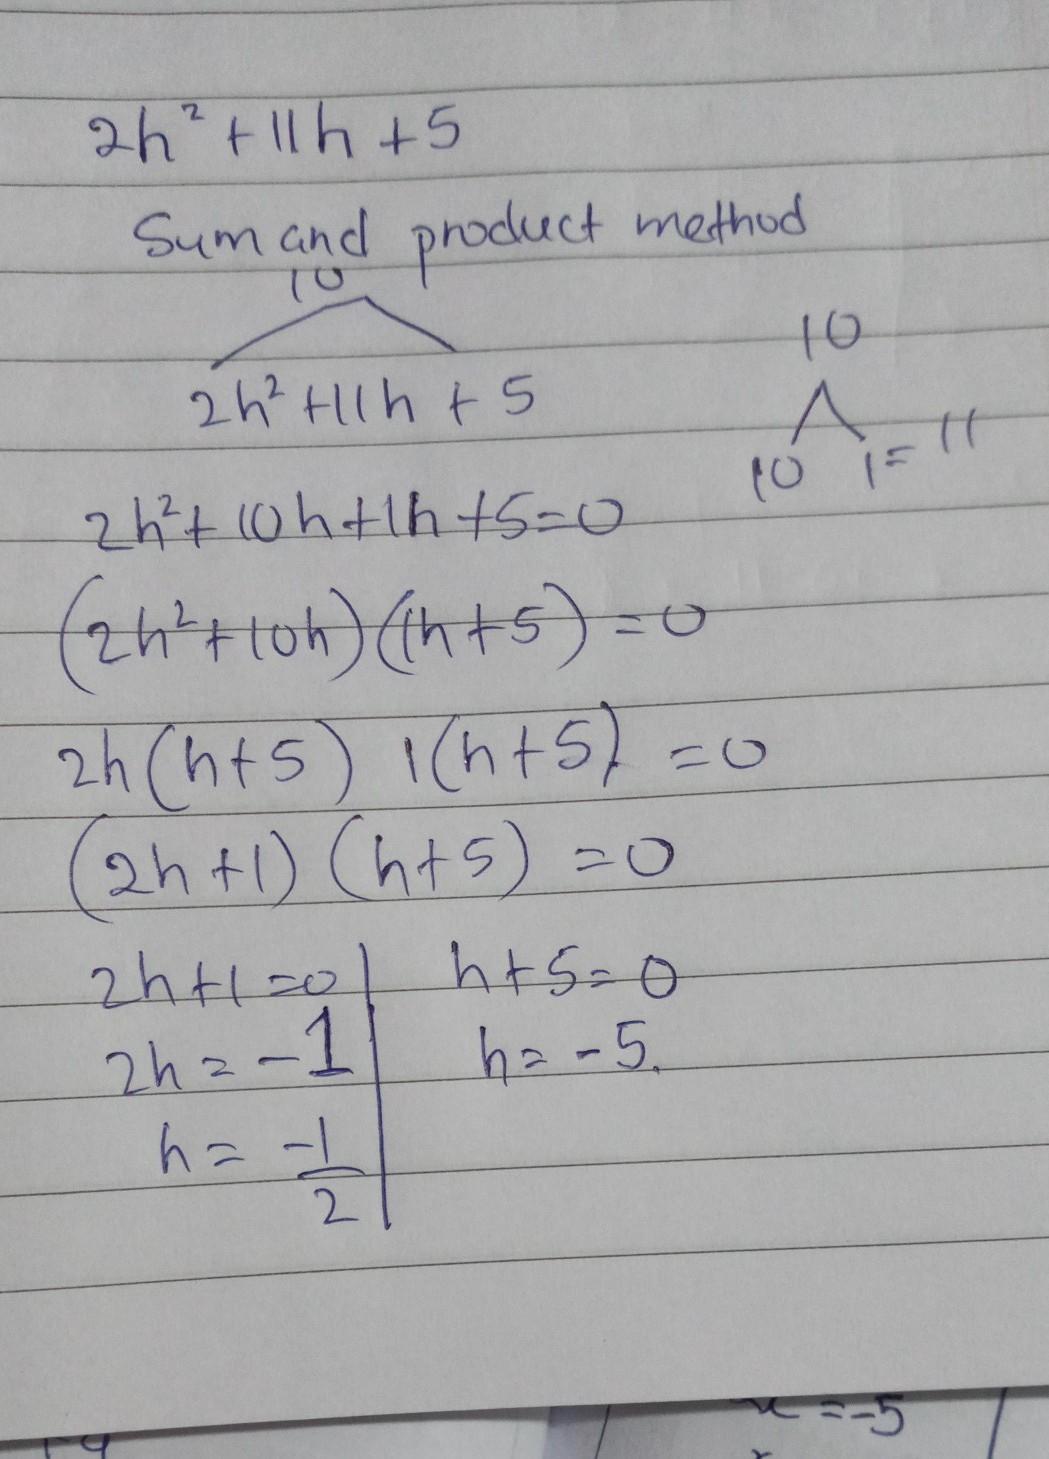 2h² + 11h + 5
Sum and product method
10
2h² + 11h + 5
10
10 1 = 11
2h² + 10h + 1h + 5 = 0
(2h² + 10h) (1h + 5) = 0
2h (h + 5) 1(h + 5) = 0
(2h + 1) (h + 5) = 0
2h + 1 = 0 | h + 5 = 0
2h = -1 | h = -5.
h = -1/2
x = -5